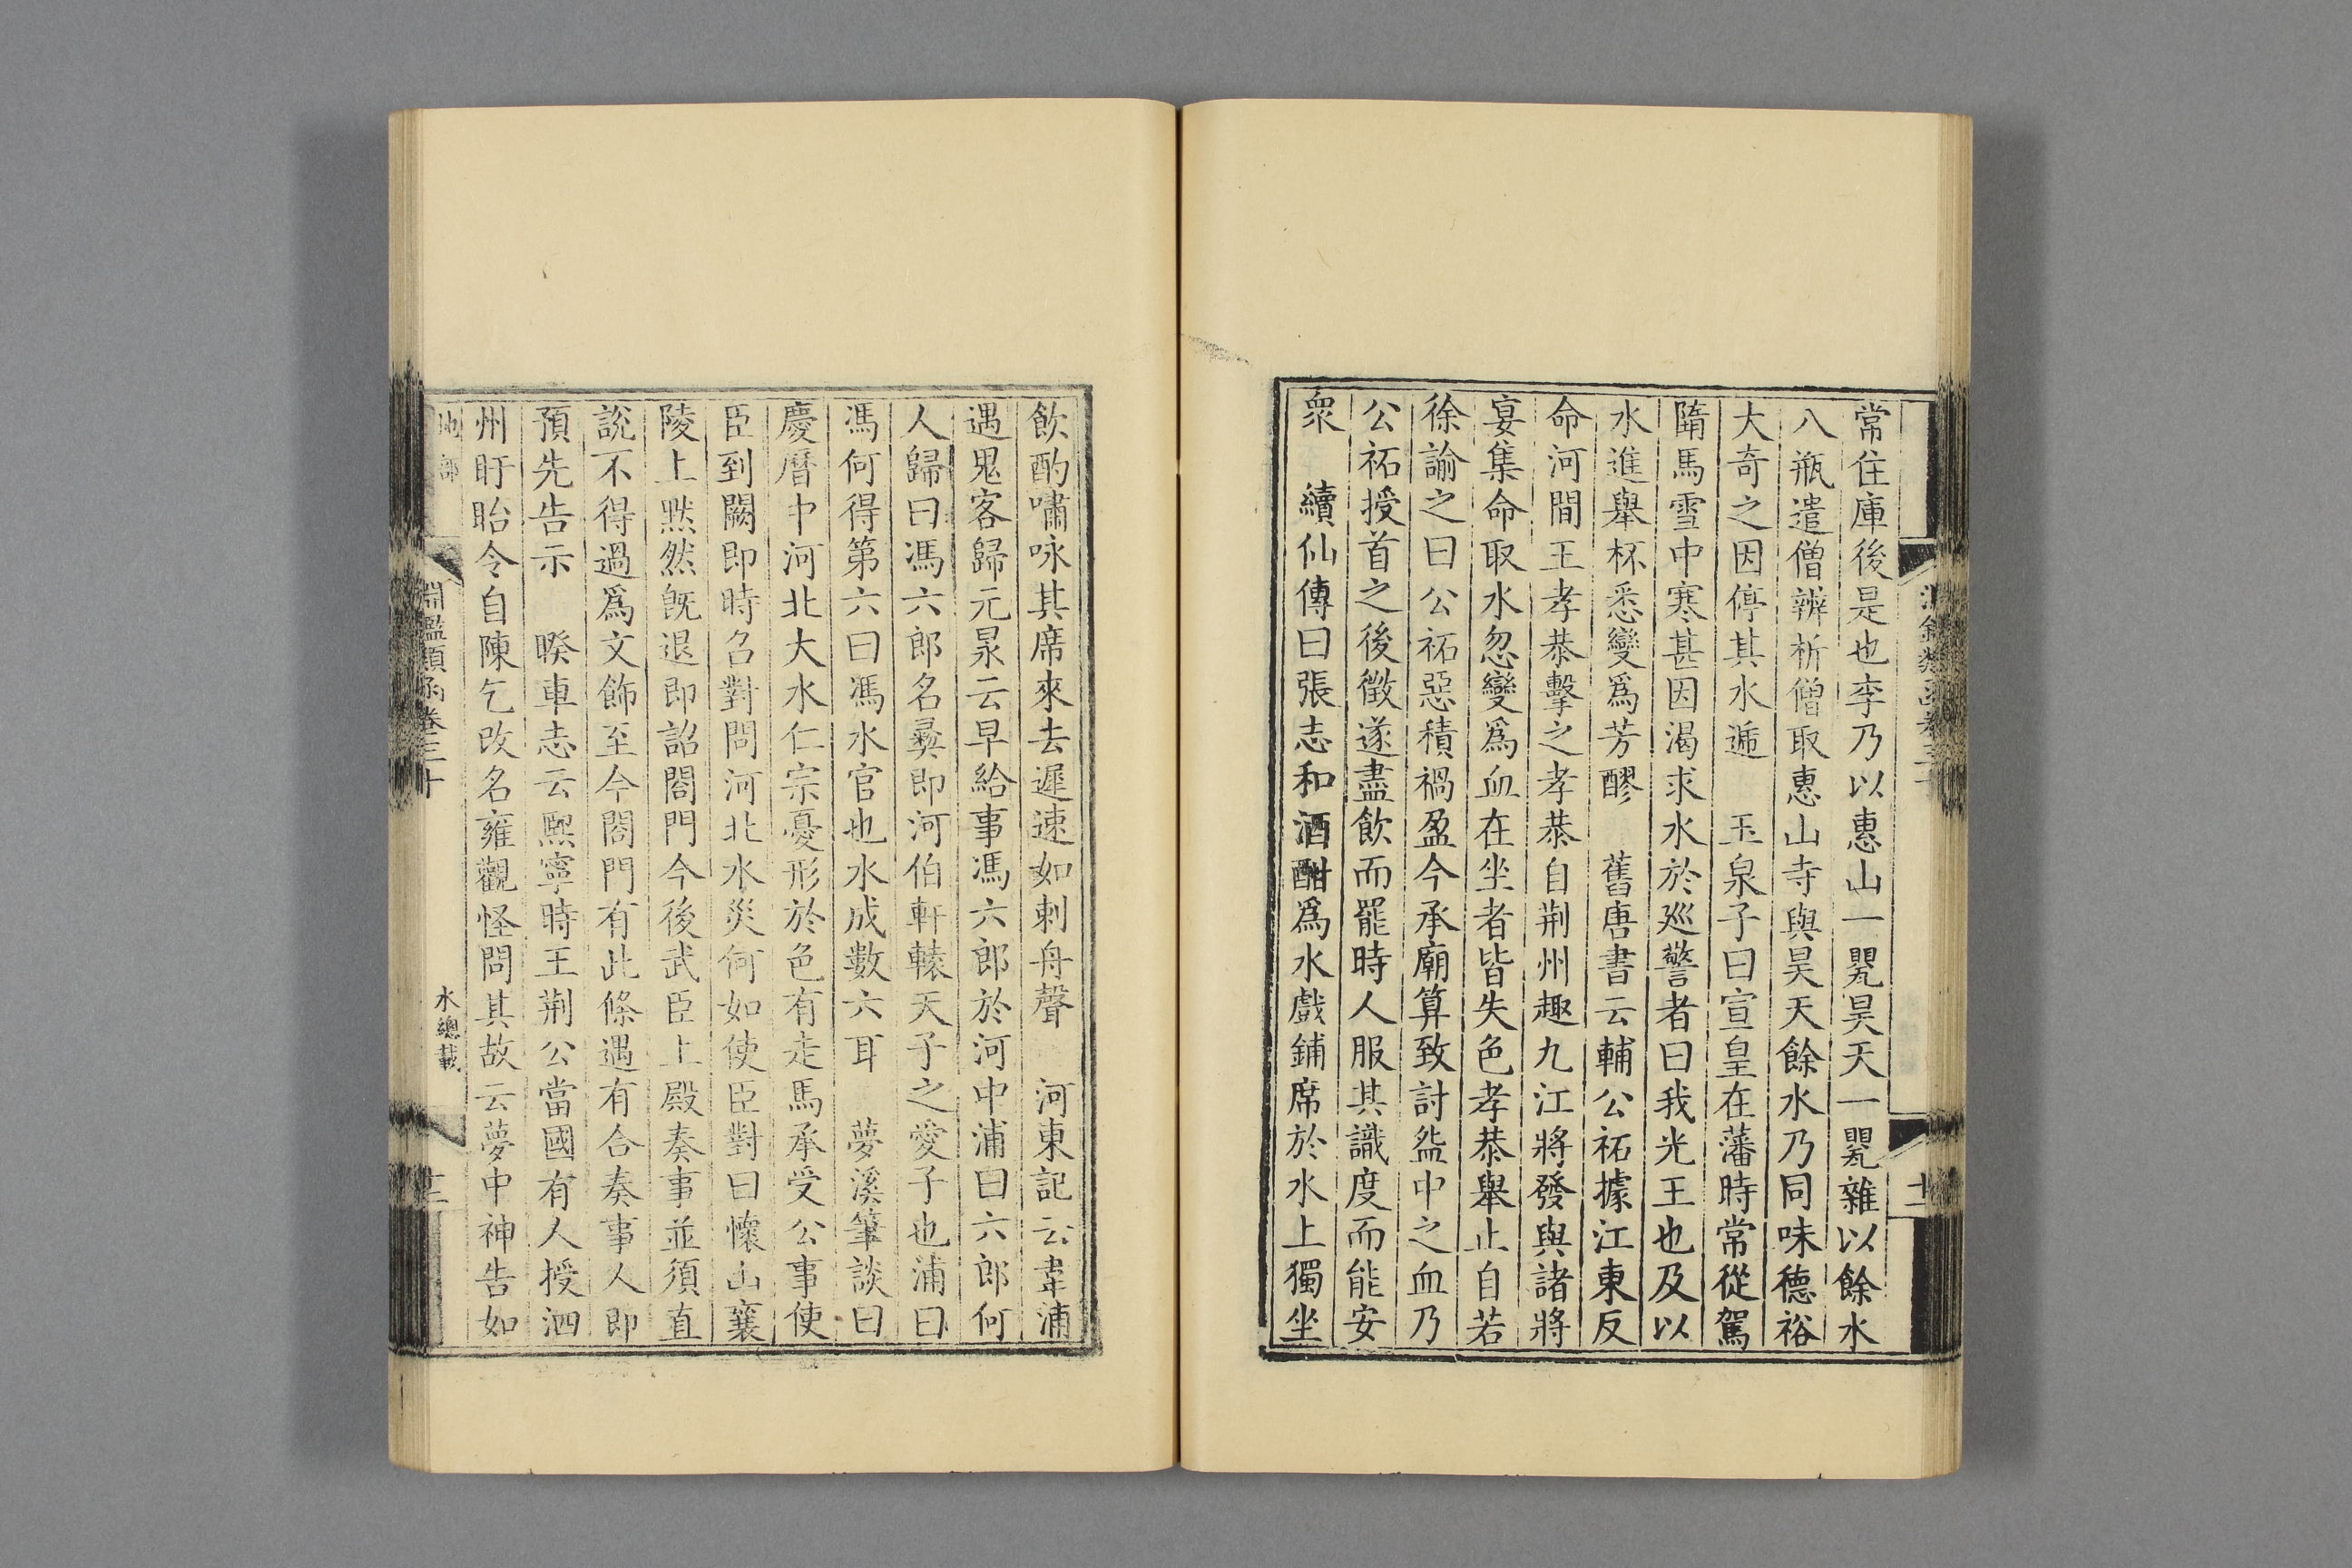 常住庫後是也李乃以惠山一甖昊天一甖雜以餘水
八瓶遣僧辨析僧取惠山寺與昊天餘水乃同味德裕
大奇之因停其水遞　玉泉子曰宣皇在藩時常從駕
墮馬雪中寒甚因渴求水於廵警者曰我光王也及以
水進舉杯悉變爲芳醪　舊唐書云輔公祏據江東反
命河間王孝恭擊之孝恭自荆州趣九江將發與諸將
宴集命取水忽變爲血在坐者皆失色孝恭舉止自若
徐諭之曰公祏惡積禍盈今承廟算致討盌中之血乃
公祏授首之後徵遂盡飲而罷時人服其識度而能安
衆　續仙傳曰張志和酒酣爲水戲鋪席於水上獨坐
飲酌嘯咏其席來去遲速如刺舟聲　河東記云韋浦
遇鬼客歸元㫤云早給事馮六郎於河中浦曰六郎何
人歸曰馮六郎名彛即河伯軒轅天子之愛子也浦曰
馮何得第六曰馮水官也水成數六耳　夢溪筆談曰
慶曆中河北大水仁宗憂形於色有走馬承受公事使
臣到闕即時召對問河北水災何如使臣對曰懷山襄
陵上默然旣退即詔閤門今後武臣上殿奏事並須直
説不得過爲文飾至今閤門有此條遇有合奏事人即
預先告示　睽車志云熈寧時王荆公當國有人授泗
州盱眙令自陳乞改名雍觀怪問其故云夢中神告如
地部
淵鑑類函卷三十
水總載